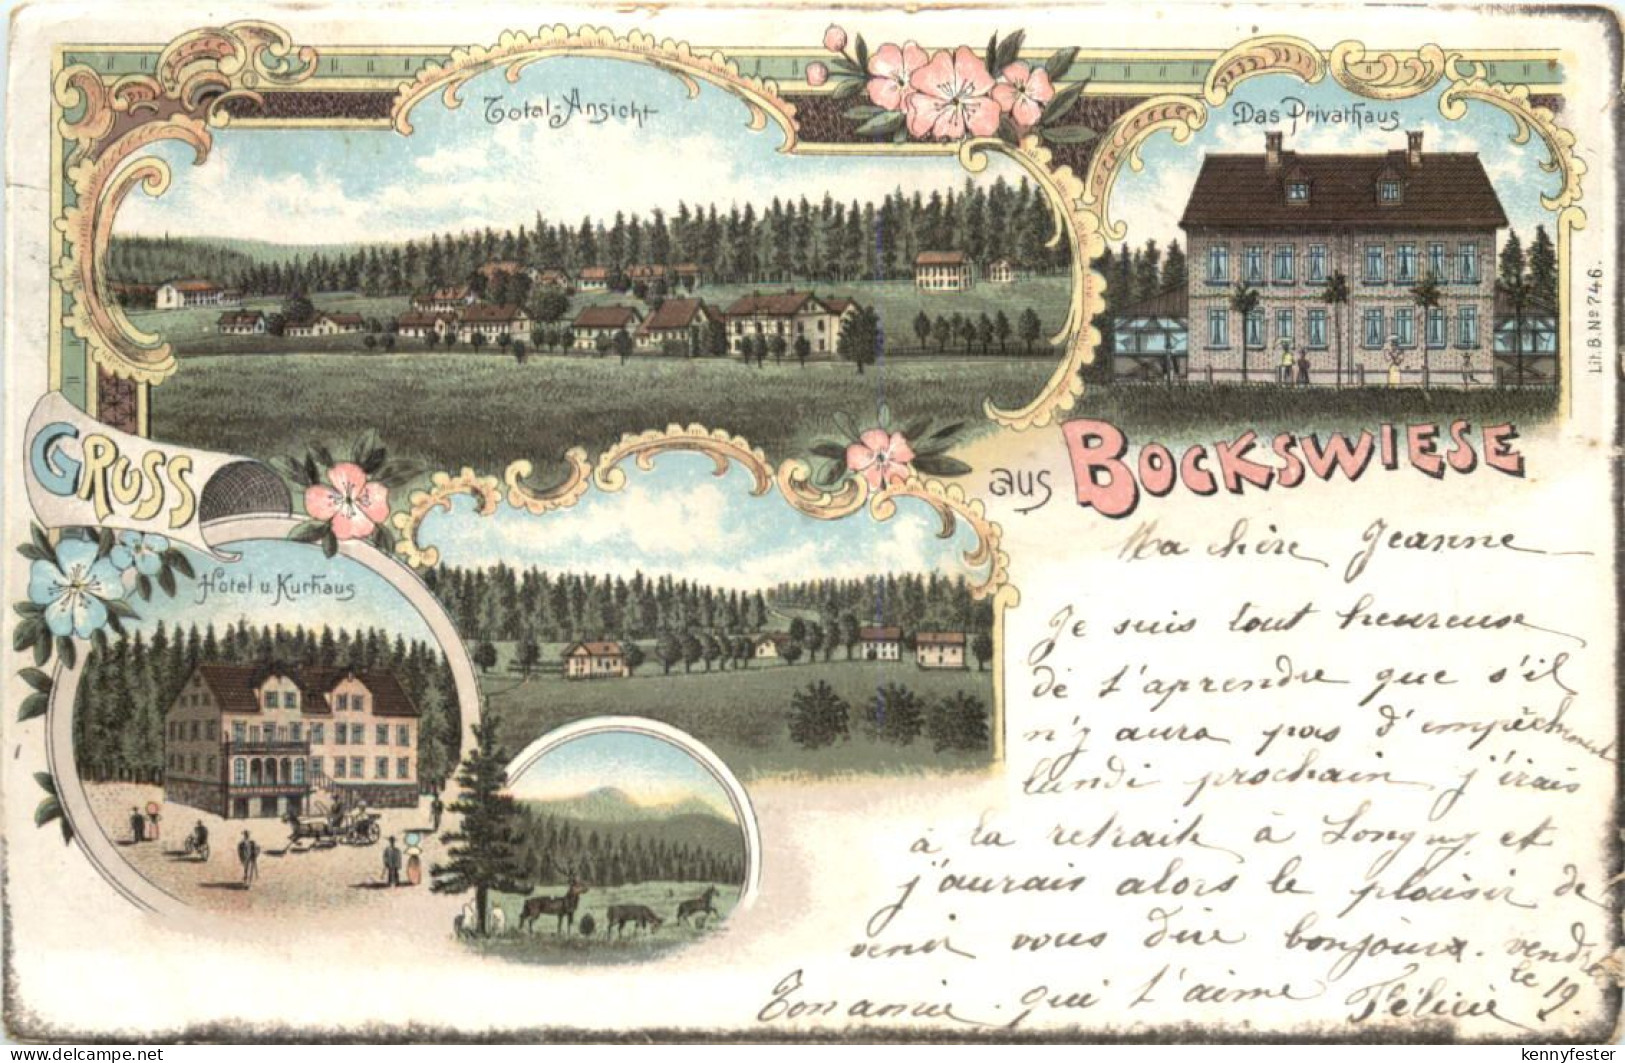 Total-Ansicht
Das Privathaus
Lit. B. No 746.
GRUSS
aus BOCKSWIESE
Hotel u. Kurhaus
Ma chère Jeanne
Je suis tout heureuse
de t'aprendre que s'il
n'y aura pas d'empêchement
lundi prochain j'irais
à la retraite à Longwy et
j'aurais alors le plaisir de
venir vous dire bonjour. vendre
le 19.
Ton amie qui t'aime Félicie
delcampe.net
kennyfester